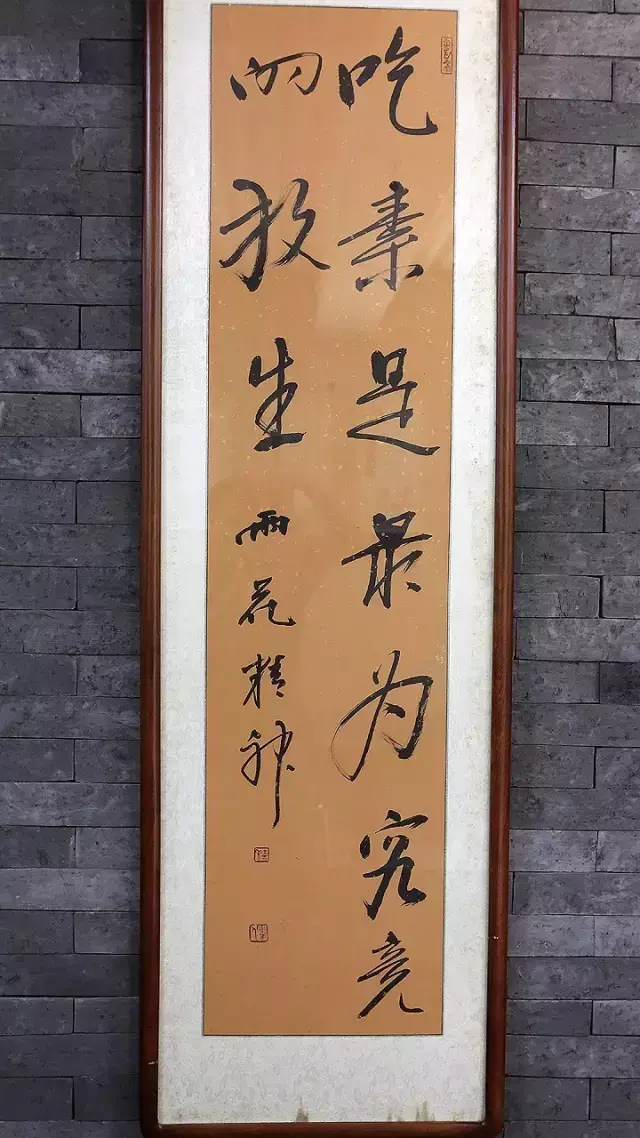 吃素是最为究竟
的放生
雨花精神